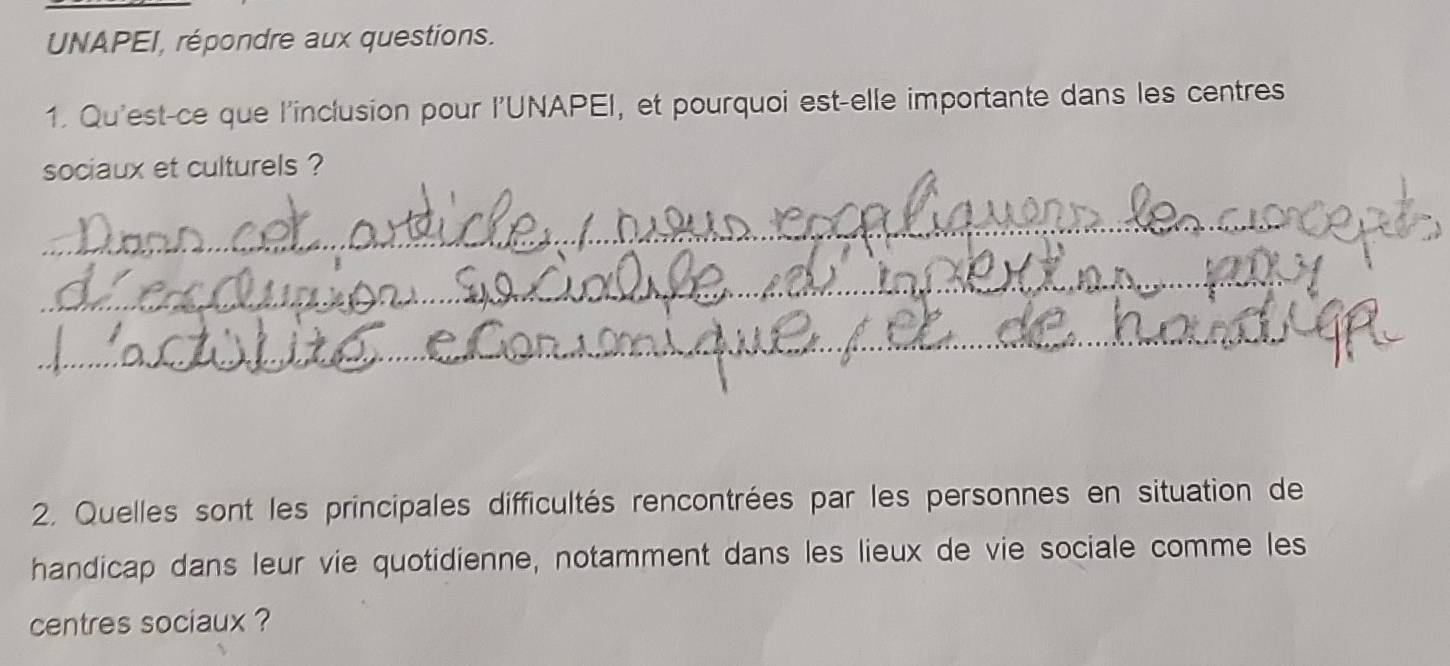 UNAPEI, répondre aux questions.
1. Qu'est-ce que l'inclusion pour l'UNAPEI, et pourquoi est-elle importante dans les centres
sociaux et culturels ?
Dans cet article, nous expliquons les concepts
d'exclusion sociale, d'insertion par
l'activité economique, et de handicap
2. Quelles sont les principales difficultés rencontrées par les personnes en situation de
handicap dans leur vie quotidienne, notamment dans les lieux de vie sociale comme les
centres sociaux ?